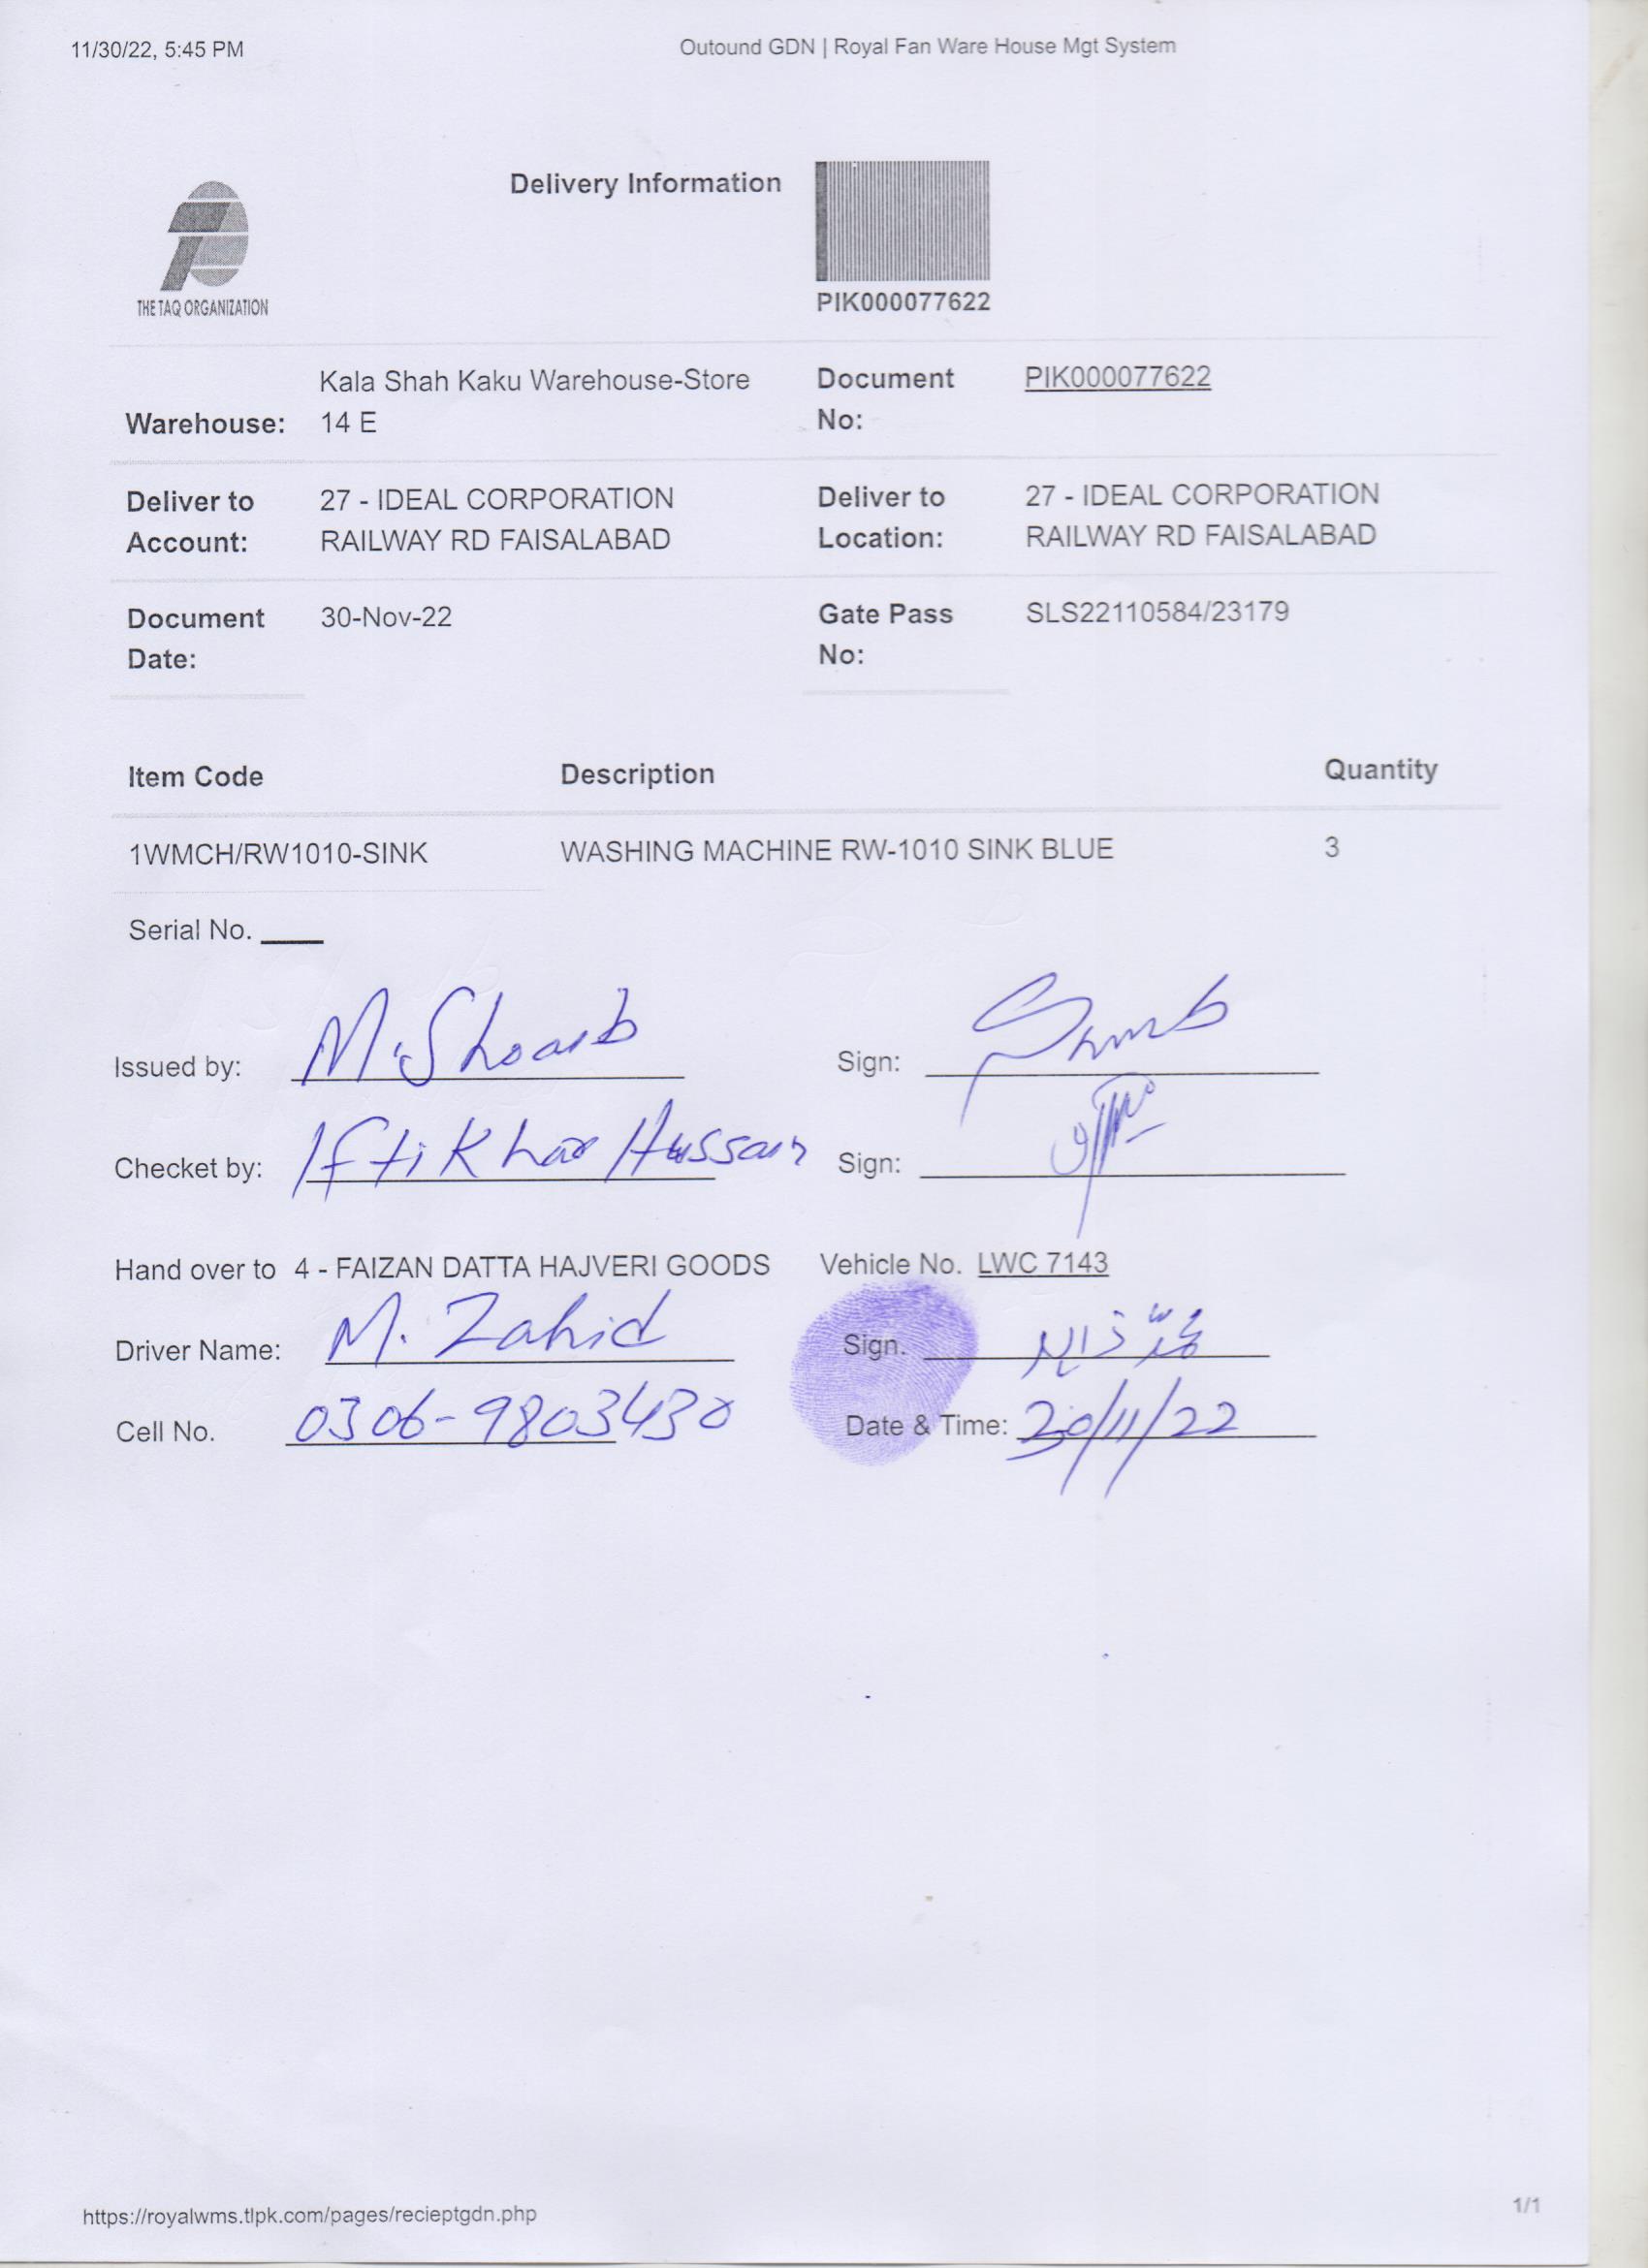 11/30/22, 5:45 PM Outound GDN | Royal Fan Ware House Mgt System
Delivery Information
THE TAQ ORGANIZATION
PIK000077622
Warehouse: Kala Shah Kaku Warehouse-Store 14 E Document No: PIK000077622
Deliver to Account: 27 - IDEAL CORPORATION RAILWAY RD FAISALABAD Deliver to Location: 27 - IDEAL CORPORATION RAILWAY RD FAISALABAD
Document Date: 30-Nov-22 Gate Pass No: SLS22110584/23179
Item Code Description Quantity
1WMCH/RW1010-SINK WASHING MACHINE RW-1010 SINK BLUE 3
Serial No.
Issued by: M. Shoaib Sign:
Checket by: Iftikhar Hussain Sign:
Hand over to 4 - FAIZAN DATTA HAJVERI GOODS Vehicle No. LWC 7143
Driver Name: M. Zahid Sign.
Cell No. 0306-9803430 Date & Time: 30/11/22
https://royalwms.tlpk.com/pages/recieptgdn.php 1/1